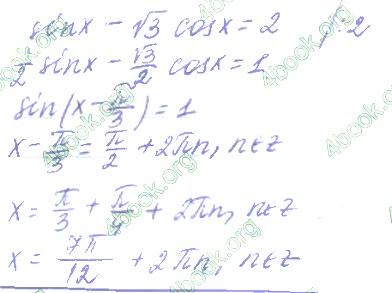 sinx - √3 cosx = 2 /: 2
1/2 sinx - √3/2 cosx = 1
sin(x - π/3) = 1
x - π/3 = π/2 + 2πn, n∈Z
x = π/3 + π/4 + 2πn, n∈Z
x = 7π/12 + 2πn, n∈Z
4book.org
4book.org
4book.org
4book.org
4book.org